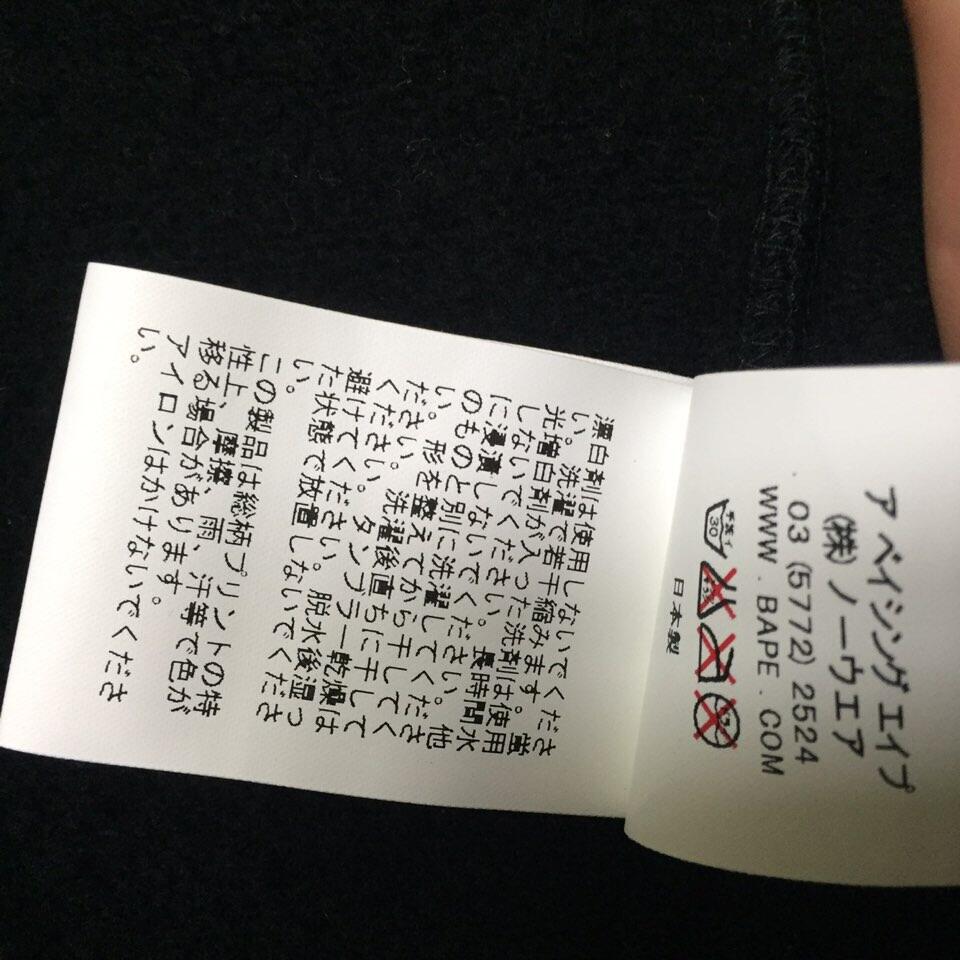 ア ベイシング エイプ
(株) ノーウエア
03 (5772) 2524
WWW . BAPE . COM
手洗イ
30
エンソ
日本製
漂白剤は使用しないでくださ
い。洗濯で若干縮みます。蛍
光増白剤が入った洗剤は使用
しないでください。長時間水
に浸漬しないでください。他
のものと別に洗濯してくださ
い。形を整えてから干して
ください。洗濯後直ちに干して
ください。タンブラー乾燥は
避けてください。脱水後湿っ
た状態で放置しないでくださ
い。
この製品は総柄プリントの特
性上、摩擦、雨、汗等で色が
移る場合があります。
アイロンはかけないでくださ
い。